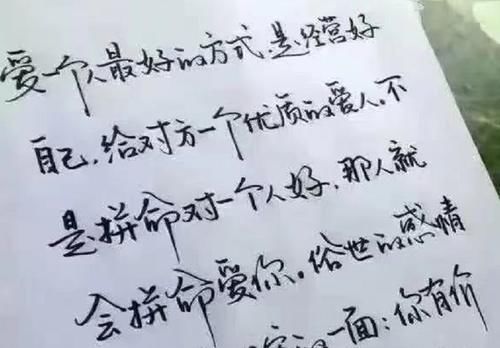 爱一个人最好的方式，是经营好
自己，给对方一个优质的爱人。不
是拼命对一个人好，那人就
会拼命爱你。俗世的感情
一面：你有价